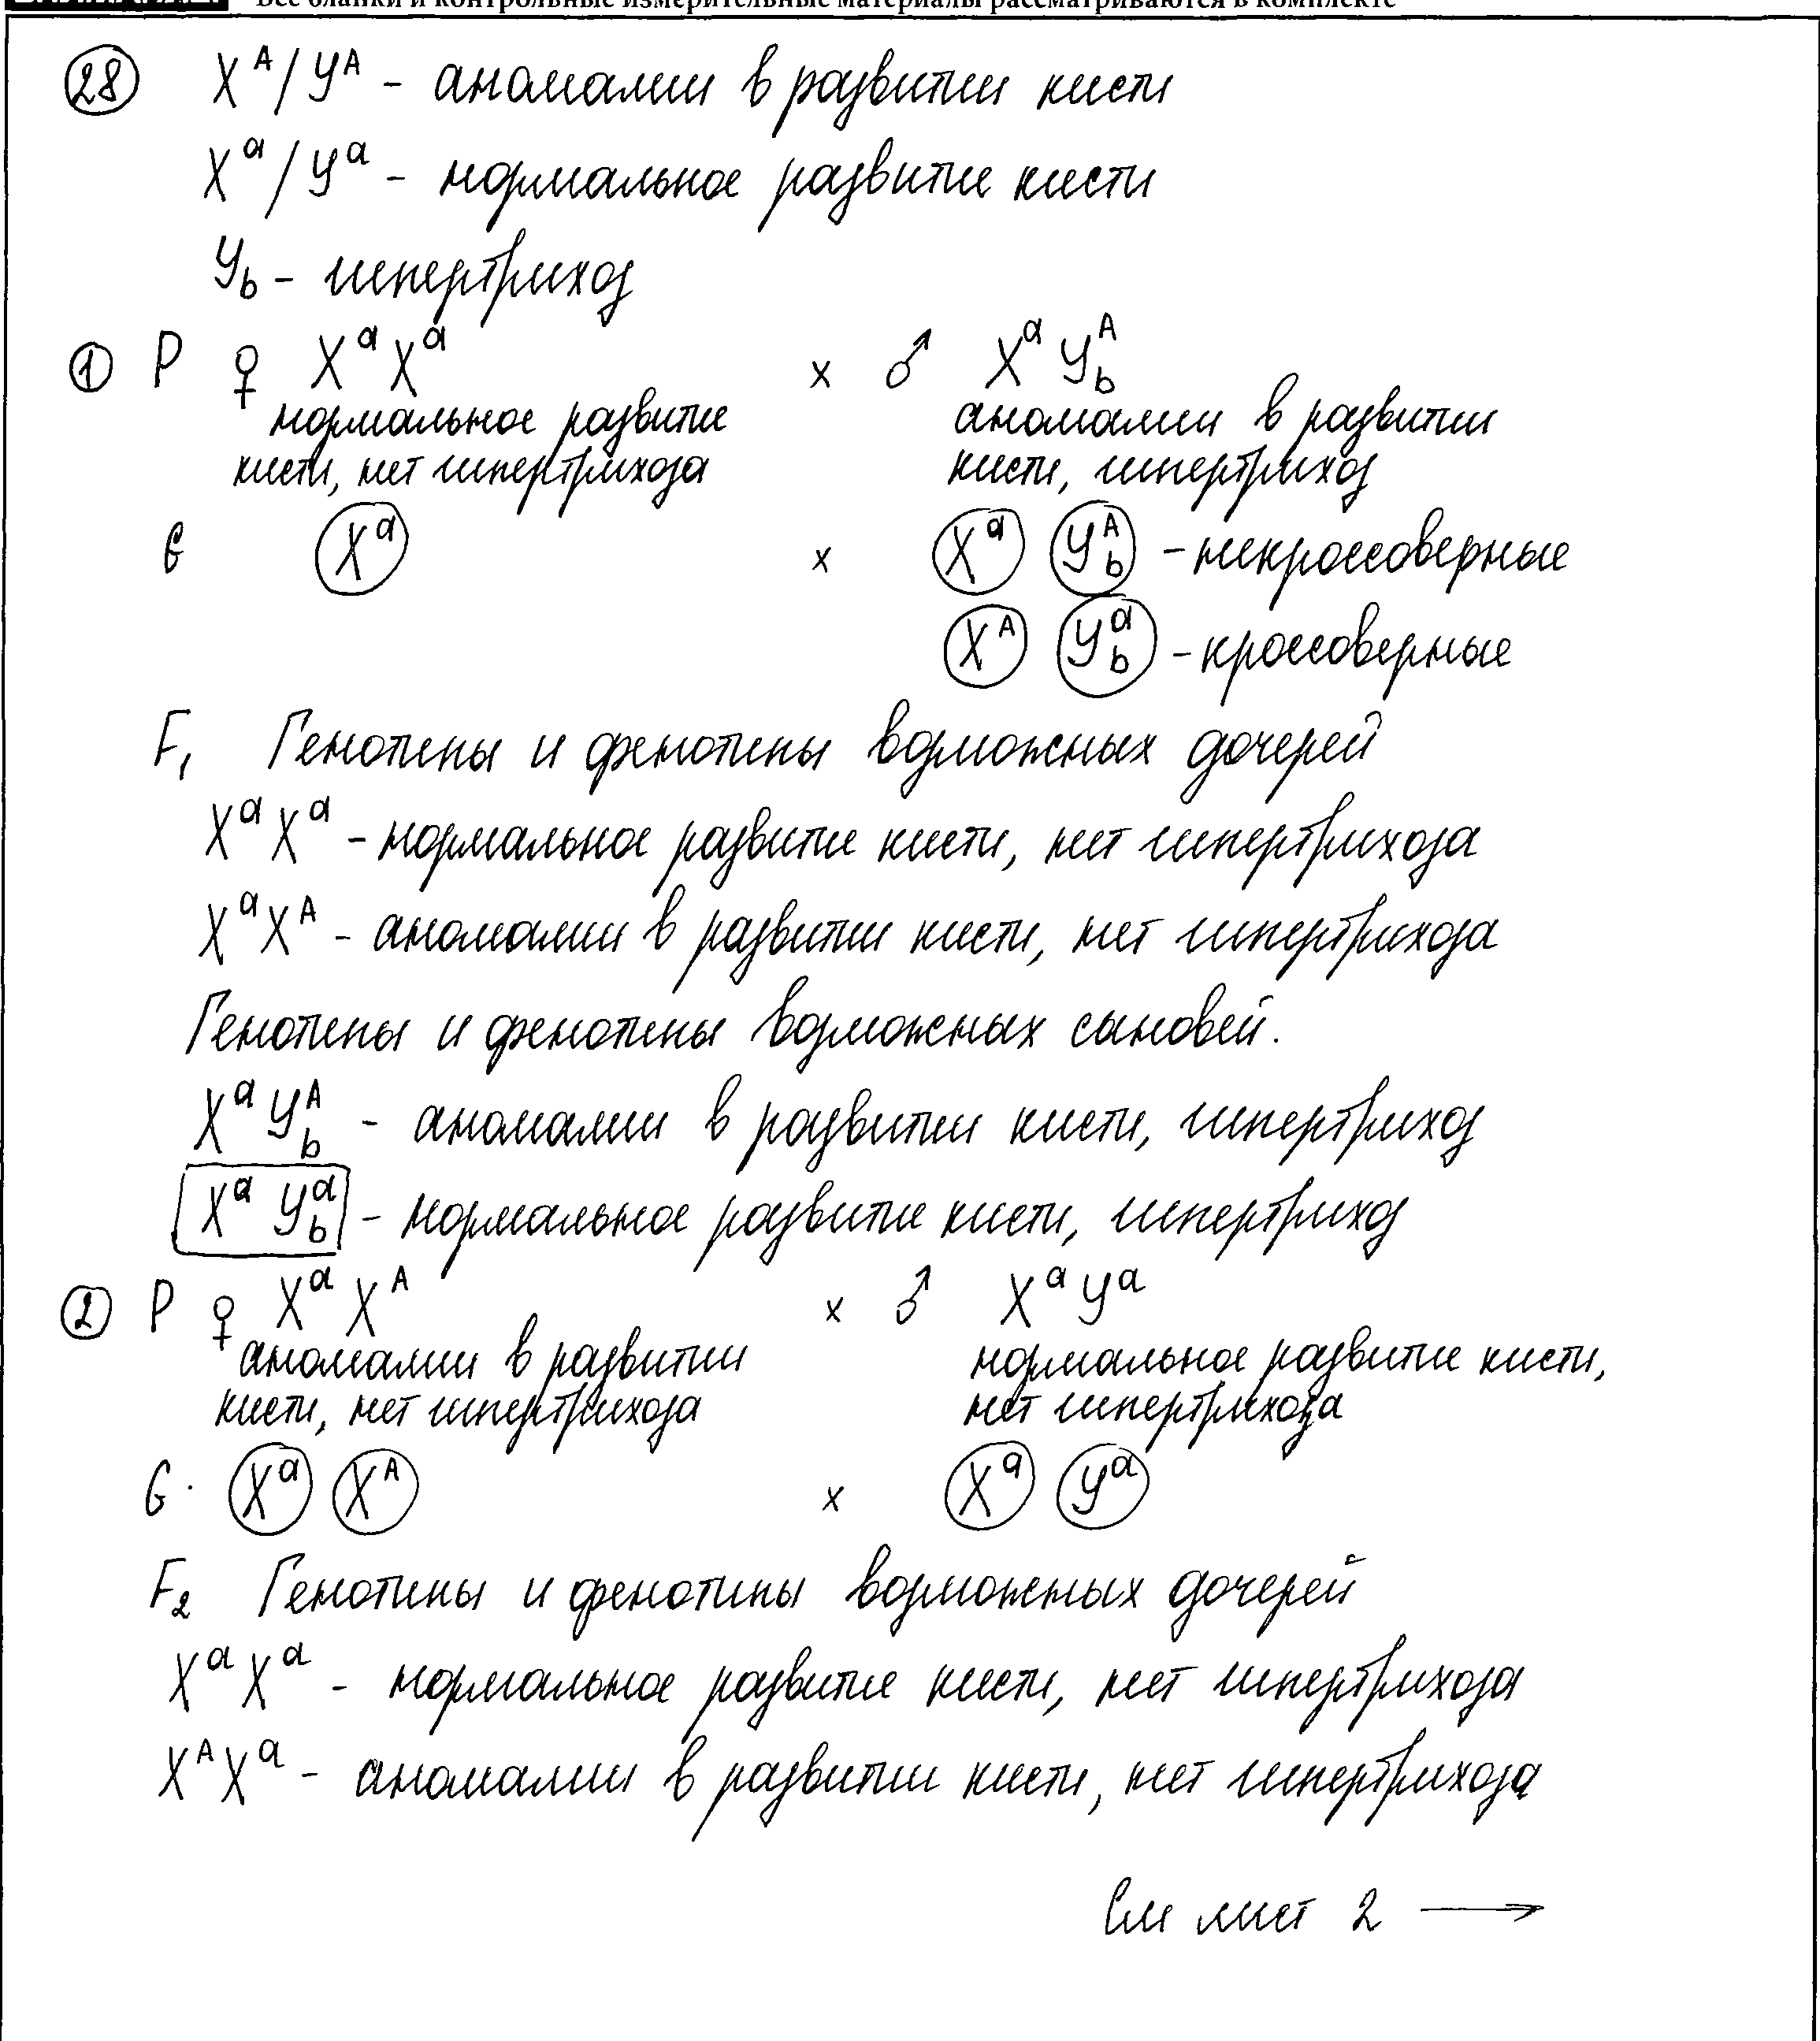 Все бланки и контрольные измерительные материалы рассматриваются в комплекте
28 X^A / Y^A - аномалии в развитии кисти
X^a / Y^a - нормальное развитие кисти
Y_b - гипертрихоз
1 P ♀ X^a X^a x ♂ X^a Y^A_b
нормальное развитие аномалии в развитии
кисти, нет гипертрихоза кисти, гипертрихоз
G X^a x X^a Y^A_b - некроссоверные
X^A Y^a_b - кроссоверные
F_1 Генотипы и фенотипы возможных дочерей
X^a X^a - нормальное развитие кисти, нет гипертрихоза
X^a X^A - аномалии в развитии кисти, нет гипертрихоза
Генотипы и фенотипы возможных сыновей.
X^a Y^A_b - аномалии в развитии кисти, гипертрихоз
X^a Y^a_b - нормальное развитие кисти, гипертрихоз
2 P ♀ X^a X^A x ♂ X^a Y^a
аномалии в развитии нормальное развитие кисти,
кисти, нет гипертрихоза нет гипертрихоза
G. X^a X^A x X^a Y^a
F_2 Генотипы и фенотипы возможных дочерей
X^a X^a - нормальное развитие кисти, нет гипертрихоза
X^A X^a - аномалии в развитии кисти, нет гипертрихоза
См лист 2 →